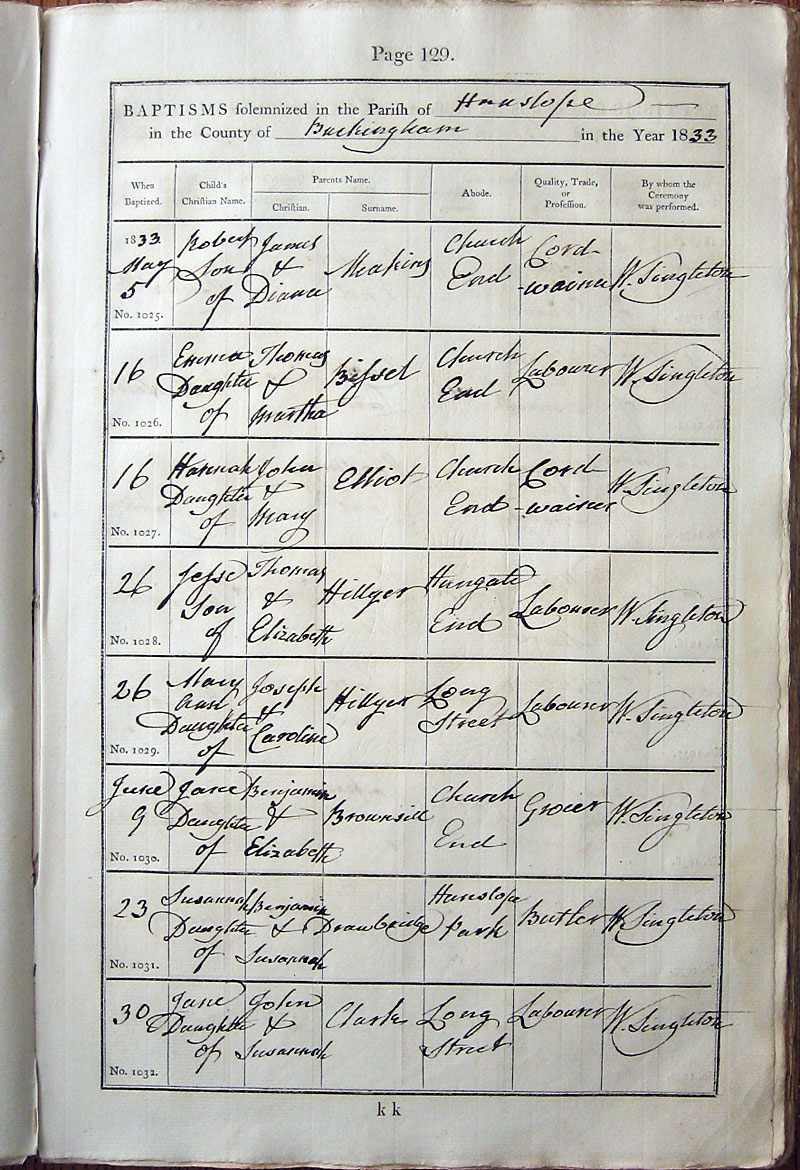 Page 129.
BAPTISMS solemnized in the Parish of Hanslope
in the County of Buckingham in the Year 1833
When Baptized. Child's Christian Name. Parents Name. Christian. Surname. Abode. Quality, Trade, or Profession. By whom the Ceremony was performed.
1833. Robert James Church Cord
May Son & Meakins End -wainer W. Singleton
5 of Diana
No. 1025.
Emma Thomas Church
16 Daughter & Bissel End Labourer W. Singleton
of Martha
No. 1026.
Hannah John Church Cord
16 Daughter & Elliot End -wainer W. Singleton
of Mary
No. 1027.
Jesse Thomas Hungate
26 Son & Hillyer End Labourer W. Singleton
of Elizabeth
No. 1028.
Mary Ann Joseph Long
26 Daughter & Hillyer Street Labourer W. Singleton
of Caroline
No. 1029.
June Jane Benjamin Church
9 Daughter & Brownsill End Grocer W. Singleton
of Elizabeth
No. 1030.
Susannah Benjamin Hanslope
23 Daughter & Drawbridge Park Butler W. Singleton
of Susannah
No. 1031.
Jane John Long
30 Daughter & Clark Street Labourer W. Singleton
of Susannah
No. 1032.
k k